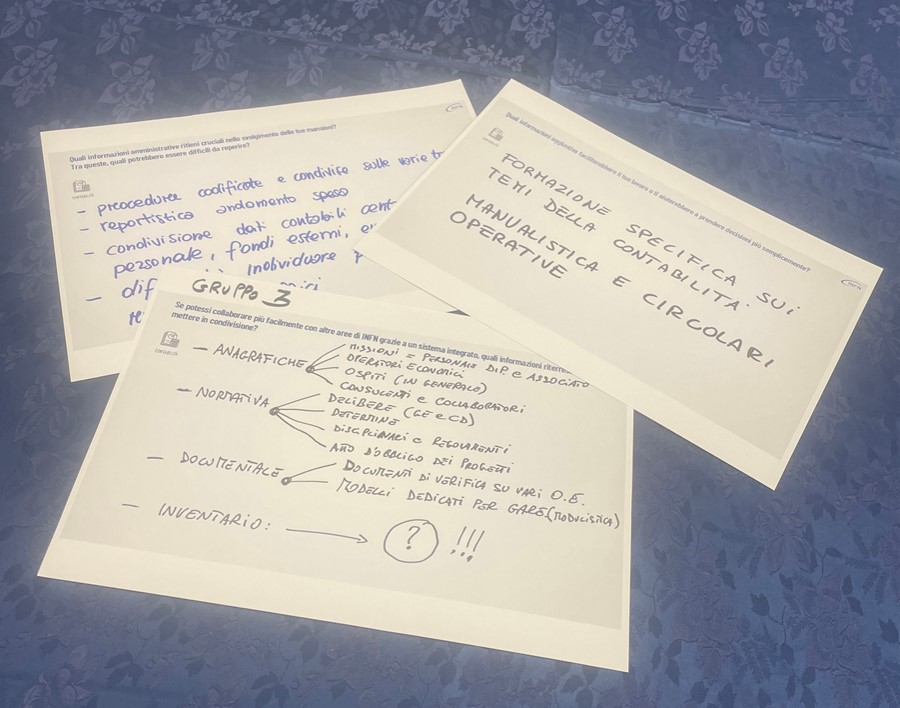 Quali informazioni amministrative ritieni cruciali nello svolgimento delle tue mansioni?
Tra queste, quali potrebbero essere difficili da reperire?
INFN
CONTABILITÀ
- proceduree codificate e condivise sulle varie
- reportistica andamento spesa
- condivisione dati contabili
personale, fondi esterni,
- individuare
Quali informazioni aggiuntive faciliterebbero il tuo lavoro e ti aiuterebbero a prendere decisioni più semplicemente?
INFN
CONTABILITÀ
FORMAZIONE SPECIFICA SUI
TEMI DELLA CONTABILITA'
MANUALISTICA E CIRCOLARI
OPERATIVE
GRUPPO 3
Se potessi collaborare più facilmente con altre aree di INFN grazie a un sistema integrato, quali informazioni
mettere in condivisione?
CONTABILITÀ
- ANAGRAFICHE
MISSIONI = PERSONALE DIP e ASSOCIATO
OPERATORI ECONOMICI
OSPITI (IN GENERALE)
CONSULENTI e COLLABORATORI
- NORMATIVA
DELIBERE (GE e CD)
DETERMINE
DISCIPLINARI e REGOLAMENTI
ATTO D'OBBLIGO DEI PROGETTI
- DOCUMENTALE
DOCUMENTI DI VERIFICA SU VARI O.E.
MODELLI DEDICATI PER GARE (MODULISTICA)
- INVENTARIO: ? !!!